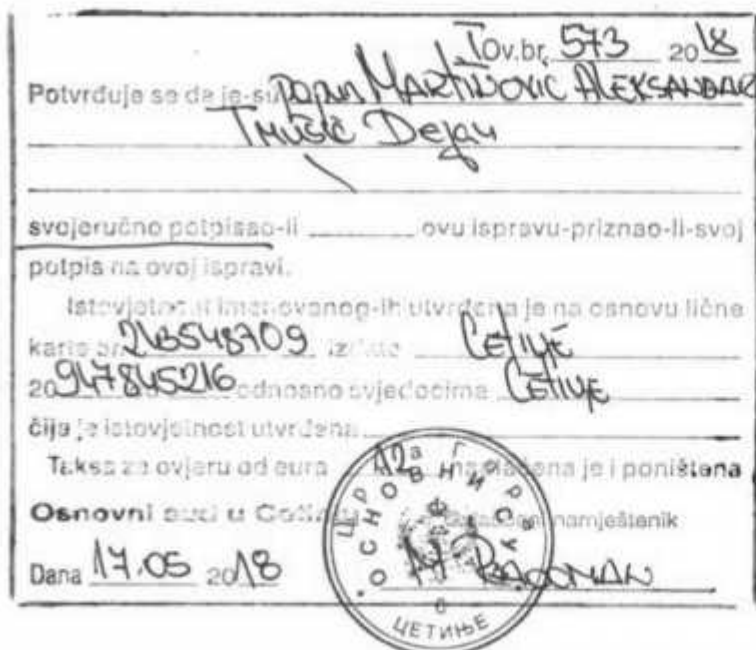 Ov.br. 573 2018
Potvrđuje se da je-su MARTINOVIĆ ALEKSANDAR
Dejan
svojeručno potpisao-li ovu ispravu-priznao-li-svoj
potpis na ovoj ispravi.
Istovjetnost imenovanog-ih utvrđena je na osnovu lične
karte br. 213548709 izdate Cetinje
20 947845216 odnosno svjedocima Cetinje
čija je istovjetnost utvrđena
Taksa za ovjeru od eura 12 naplaćena je i poništena
Osnovni sud u Cetinju namještenik
Dana 17.05 2018 RADOMAN
Црна Гора
ОСНОВНИ СУД
ЦЕТИЊЕ